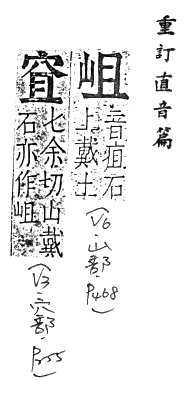 重訂直音篇
岨
音疽石
上戴土
(V6·山部·P468)
㝖
七余切山戴
石亦作岨
(V3·穴部·P255)